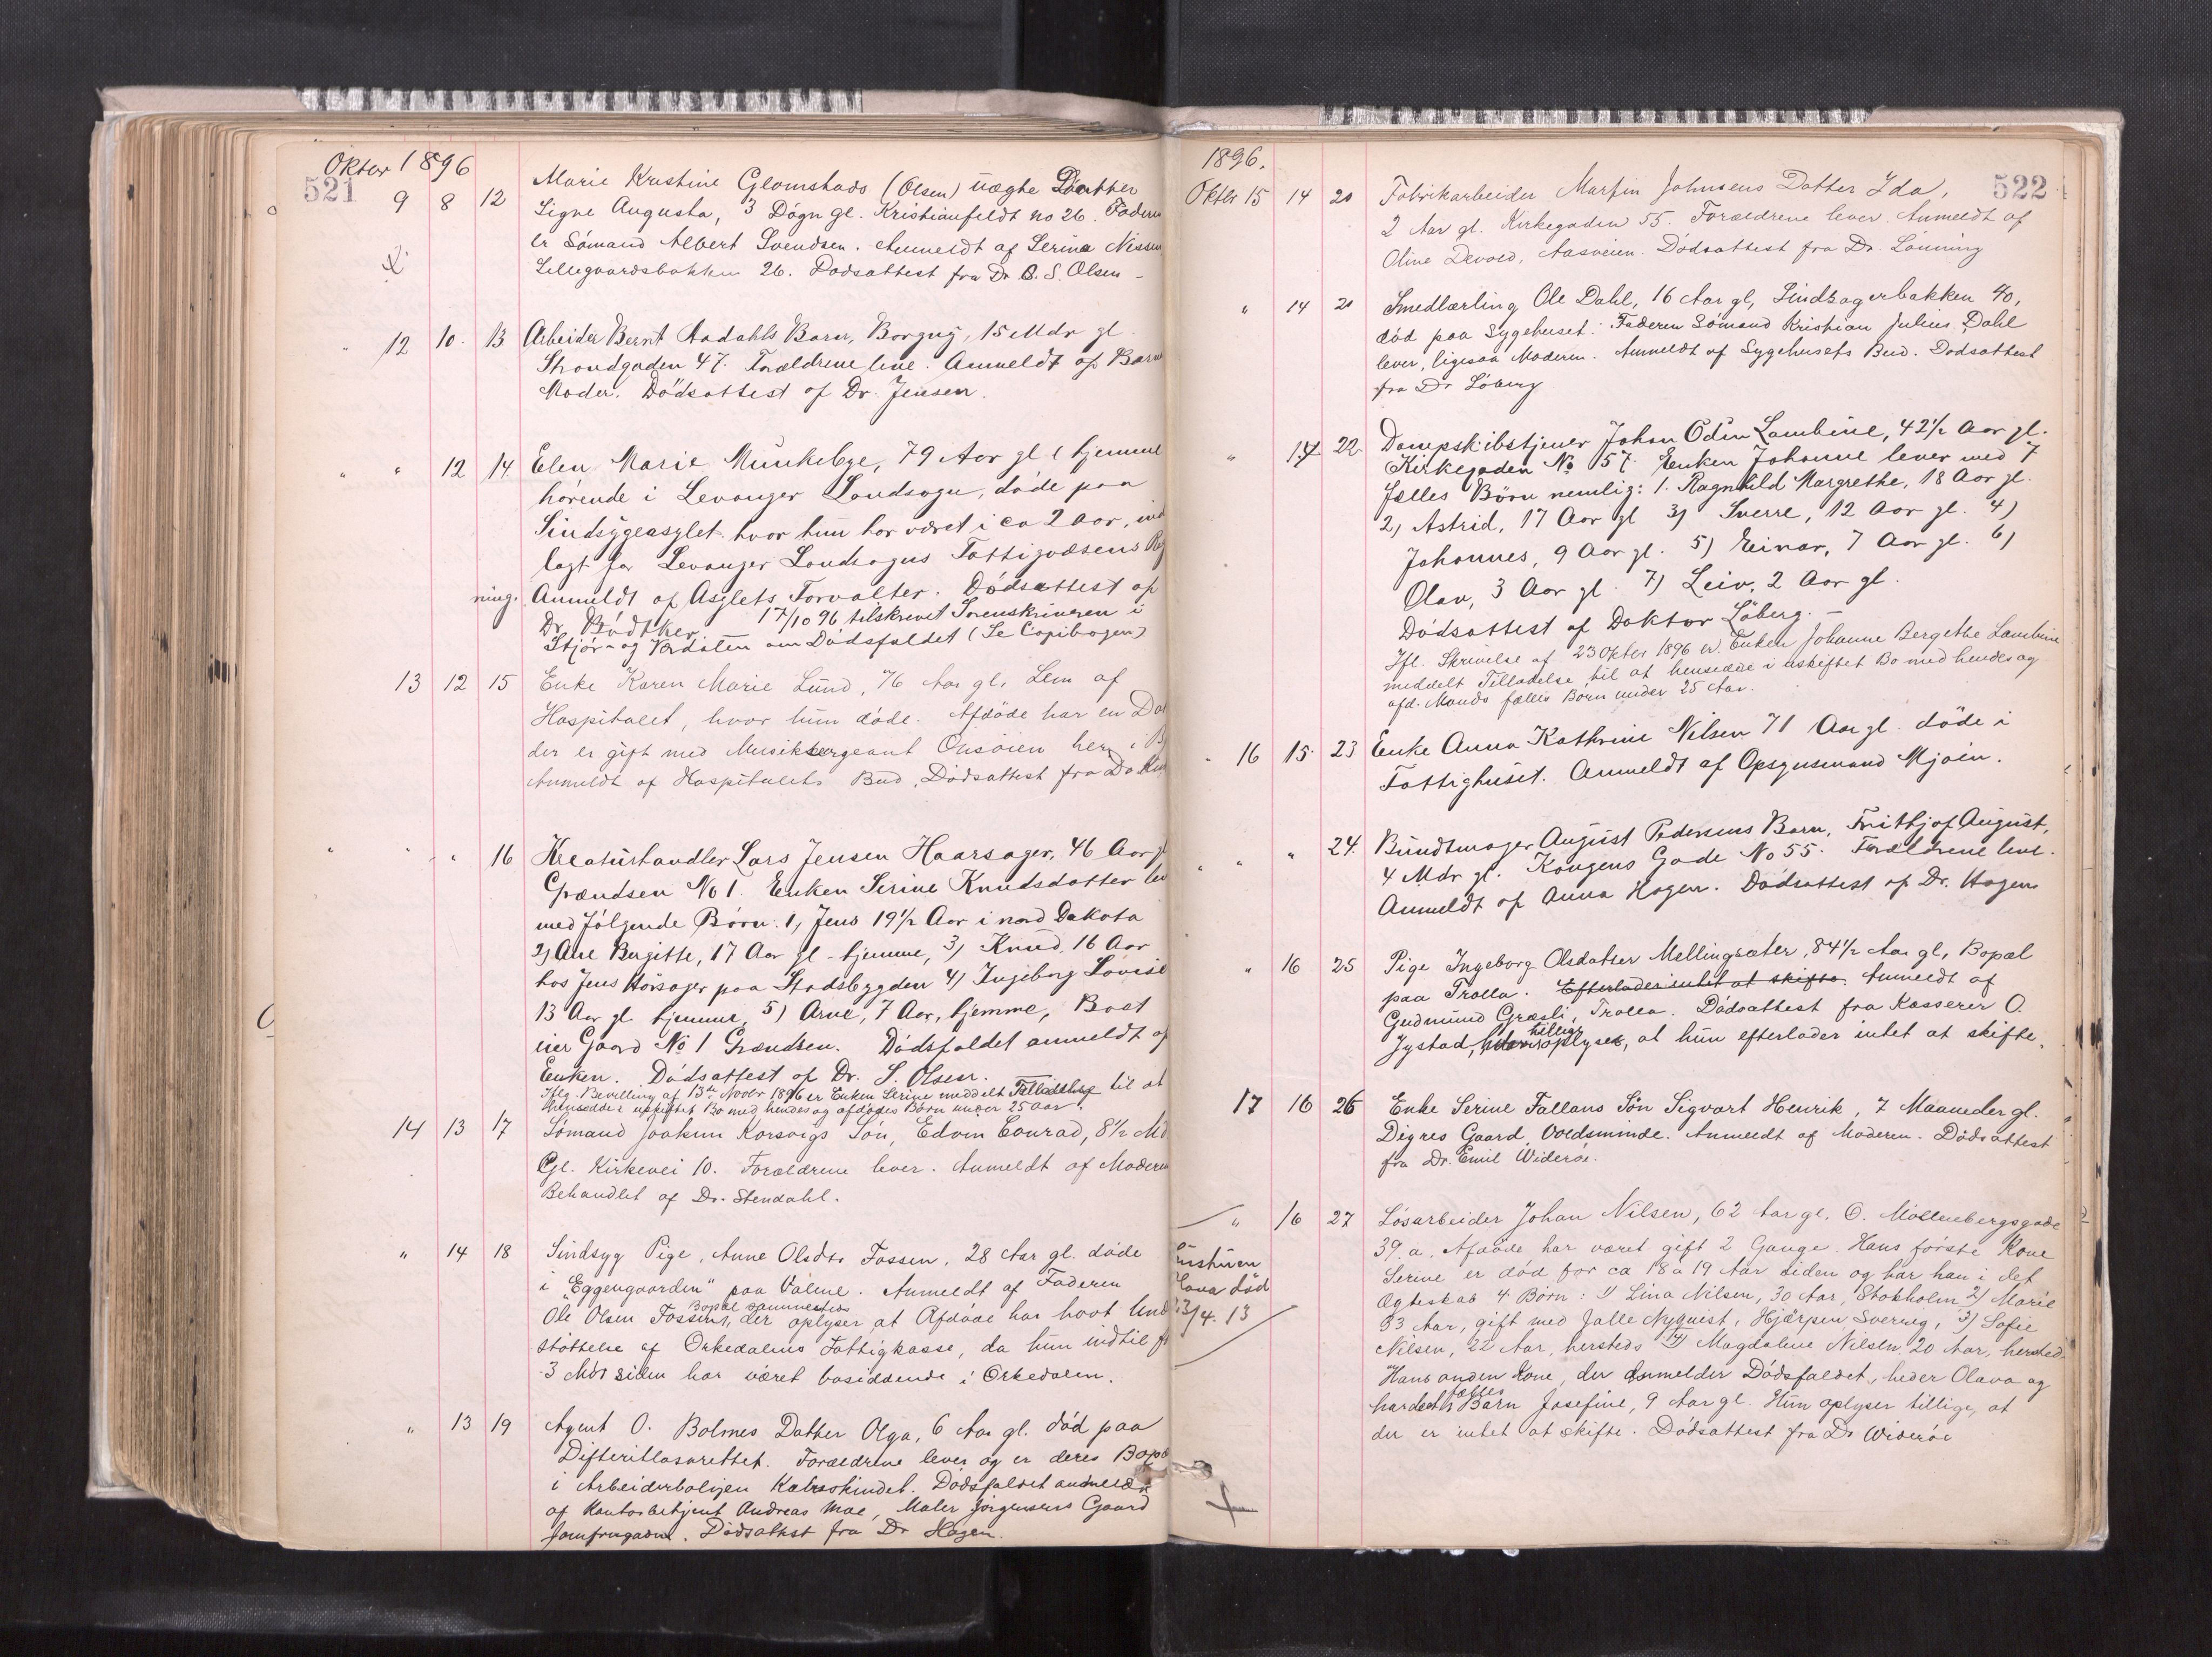 Oktbr 1896
521
9 8 12 Marie Kristine Glomstads (Olsen) uægte Daatter
Signe Augusta, 3 Døgn gl. Kristianfeldt no 26. Faderen
er Sømand Albert Svendsen. Anmeldt af Serina Nissen
Lillegaardsbakken 26. Dødsattest fra Dr. O. S. Olsen -
" 12 10. 13 Arbeider Bernt Aadahls Barn, Borgny, 15 Mdr gl
Strandgaden 47. Forældrene leve. Anmeldt af Barnets
Moder. Dødsattest af Dr. Jensen.
" " 12 14 Elen Marie Munkebye, 79 Aar gl hjemme
hørende i Levanger Landsogn, døde paa
Sindsygeasylet hvor hun har været i ca 2 Aar, ind
lagt for Levanger Landsogns Fattigvæsens Reg
ning. Anmeldt af Asylets Forvalter. Dødsattest af
Dr. Bødtker 17/10 96 tilskrevet Sorenskriveren i
Stjør- og Verdalen om Dødsfaldet (Se Copibogen)
13 12 15 Enke Karen Marie Lund, 76 Aar gl. Lem af
Hospitalet, hvor hun døde. Afdøde har en Dat
der er gift med Musiksergeant Onsøien her i B
Anmeldt af Hospitalets Bud. Dødsattest fra
" " " 16 Kreaturhandler Lars Jensen Haarsager, 46 Aar gl
Grændsen No 1. Enken Serine Knudsdatter lev
med følgende Børn: 1, Jens 19 1/2 Aar i nord Dakota
2) Ane Bergitte, 17 Aar gl - hjemme, 3) Knud, 16 Aar
hos Jens Hørsager paa Stadsbygden 4) Ingeborg Lovise
13 Aar gl hjemme, 5) Arne, 7 Aar, hjemme, Boet
eier Gaard No 1 Grændsen. Dødsfaldet anmeldt af
Enken. Dødsattest af Dr. S. Olsen.
Iflg. Bevilling af 13de Novbr 1896 er Enken Serine meddelt Tilladelse til at
hensidde i uskiftet Bo med hendes og afdødes Børn under 25 Aar.
14 13 17 Sømand Joakim Korsvigs Søn, Edvin Conrad, 8 1/2 Md
Gl. Kirkevei 10. Forældrene lever. Anmeldt af Moderen
Behandlet af Dr. Stendahl.
" 14 18 Sindsyg Pige, Anne Olsdtr Fossen, 28 Aar gl. døde
i "Eggengaarden" paa Ihlene. Anmeldt af Faderen
Bopæl sammesteds
Ole Olsen Fossen, der oplyser at Afdøde har havt Und
støttelse af Orkedalens Fattigkasse, da hun indtil f
3 Mdr siden har været bosiddende i Orkedalen.
" 13 19 Agent O. Bolmes Datter Olga, 6 Aar gl. død paa
Difteritlasarettet. Forældrene lever og er deres Bopæ
i Arbeiderboligen Kalvskindet. Dødsfaldet anmeldt
af Kontorbetjent Andreas Moe, Maler Jørgensens Gaard
Jomfrugaden. Dødsattest fra Dr Hagen.
1896.
522
Oktbr 15 14 20 Fabrikarbeider Martin Johnsens Datter Ida,
2 Aar gl. Kirkegaden 55. Forældrene lever. Anmeldt af
Oline Devold, Aasveien. Dødsattest fra Dr. Lønning
" 14 21 Smedlærling Ole Dahl, 16 Aar gl, Lindsagerbakken 40,
død paa Sygehuset. Faderen Sømand Kristian Julius Dahl
lever, ligesaa Moderen. Anmeldt af Sygehusets Bud. Dødsattest
fra Dr Løberg
" 14 22 Dampskibstjener Johan Odin Lambine, 42 1/2 Aar gl.
Kirkegaden No 57. Enken Johanne lever med 7
fælles Børn nemlig: 1. Ragnhild Margrethe, 18 Aar gl.
2) Astrid, 17 Aar gl 3) Sverre, 12 Aar gl. 4)
Johannes, 9 Aar gl. 5) Einar, 7 Aar gl. 6)
Olav, 3 Aar gl. 7) Leiv, 2 Aar gl.
Dødsattest af Doktor Løberg. -
Ifl. Skrivelse af 23 Oktbr 1896 er Enken Johanne Bergethe Lambine
meddelt Tilladelse til at hensidde i uskiftet Bo med hendes og
afd. Mands fælles Børn under 25 Aar.
" 16 15. 23 Enke Anna Kathrine Nilsen 71 Aar gl. døde i
Fattighuset. Anmeldt af Opsynsmand Mjøen.
" " 24. Bundtmager August Pedersens Barn, Frithjof August,
4 Mdr gl. Kongens Gade No 55. Forældrene leve.
Anmeldt af Anna Hagen. Dødsattest af Dr. Hagen
" 16 25 Pige Ingeborg Olsdatter Mellingsæter, 84 1/2 Aar gl, Bopæl
paa Trolla. Efterlader intet at skifte. Anmeldt af
Gudmund Græsli, Trolla. Dødsattest fra Kasserer O.
tillige
Jystad, oplyser, at hun efterlader intet at skifte.
17 16 26 Enke Serine Fallans Søn Sigvart Henrik, 7 Maaneder gl.
Digres Gaard, Voldsminde. Anmeldt af Moderen. Dødsattest
fra Dr. Emil Widerøe.
" 16 27 Løsarbeider Johan Nilsen, 62 Aar gl. O. Møllenbergsgade
39.a. Afdøde har været gift 2 Gange. Hans første Kone
Serine er død for ca 18 a 19 Aar siden og har han i det
Ægteskab 4 Børn: 1) Lina Nilsen, 30 Aar, Stokholm 2) Marie
33 Aar, gift med Jalle Nyqvist, Hjärpen, Sverveg, 3) Sofie
Nilsen, 22 Aar, hersteds 4) Magdaline Nilsen, 20 Aar, hersted.
Hans anden Kone, der anmelder Dødsfaldet, heder Olava og
fælles
har de et Barn Josefine, 9 Aar gl. Hun oplyser tillige, at
der er intet at skifte. Dødsattest fra Dr Widerøe
Hustruen
Olava død
13/4. 13